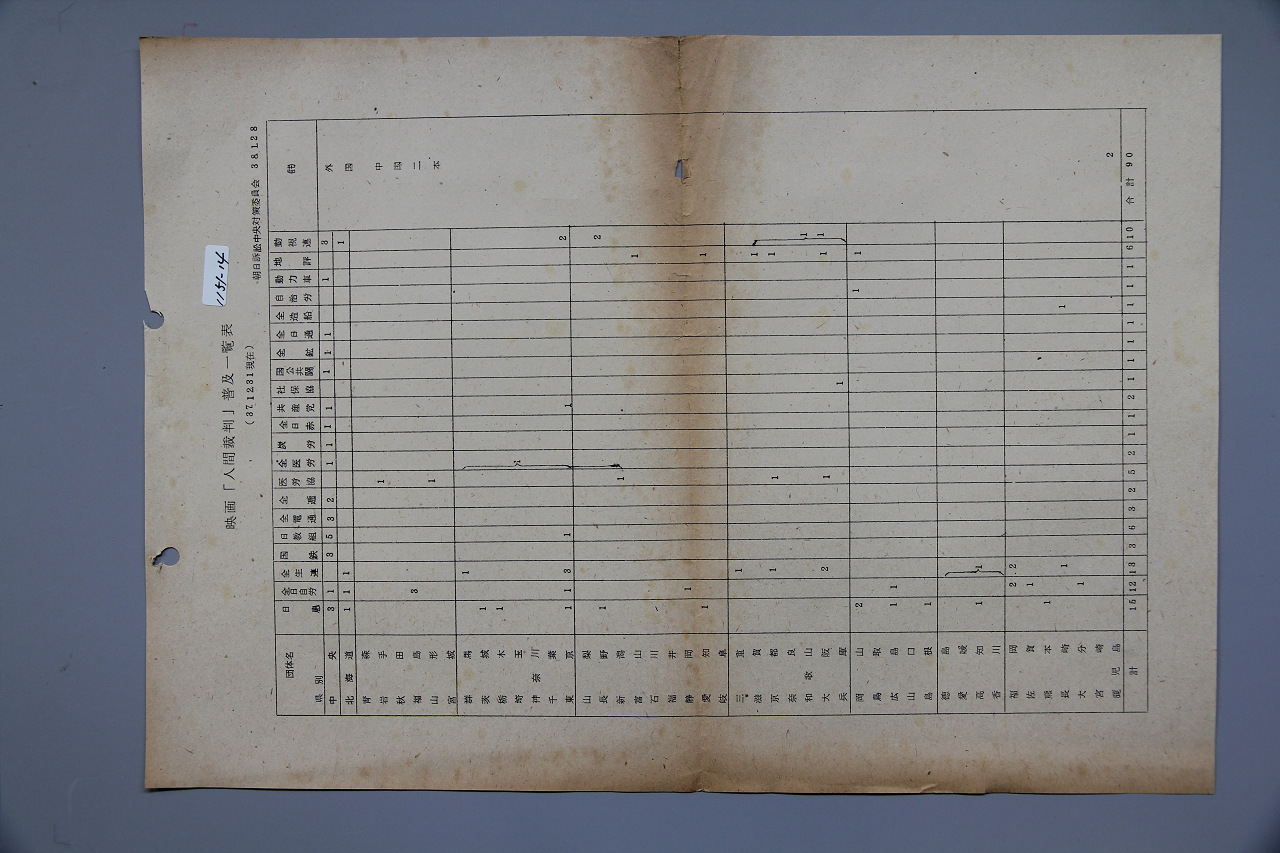 1151-14
映画「人間裁判」普及一覧表
(37.12.31現在)
朝日訴訟中央対策委員会 38.1.28
団体名 県別 日患 全日自労 全生連 国鉄 日教組 全電通 全逓 医労協 全医労 炭労 全日赤 共産党 社保協 国公共闘 全鉱 全日通 全造船 自治労 動力車 地評 視連
中央 3 1 3 5 3 2 1 1 1 1 1 1 1 1 3 外国 中国 二本
北海道 1 1 1 1
青森
岩手 1
秋田
福島 3
山形 1
宮城
群馬 1
茨城 1
栃木 1
埼玉 1
神奈川
千葉
東京 1 1 3 1 1 2
山梨
長野 1 2
新潟 1
富山 1
石川
福井
静岡 1
愛知 1 1
岐阜
三重 1
滋賀 1
京都 1 1 1
奈良
和歌山 1
大阪 2 1 1 1
兵庫 1
岡山 2 1 1
鳥取
広島 1 1
山口
島根 1
徳島
愛媛
高知 1 1
香川
福岡 2 2
佐賀 1
熊本 1
長崎 1 1
大分 1
宮崎
鹿児島 2
計 15 12 13 3 6 3 2 5 2 1 1 2 1 1 1 1 1 1 1 6 10 合計 90